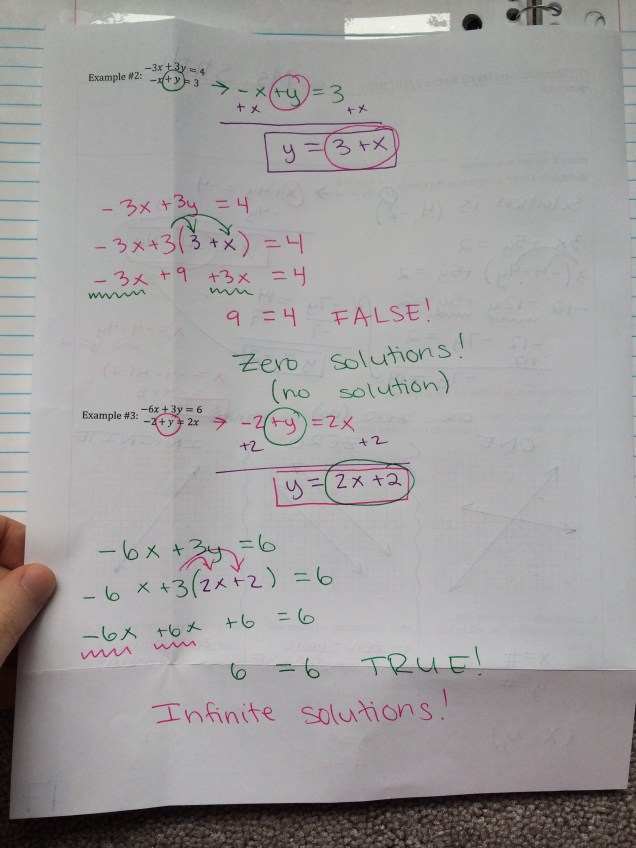 Example #2: -3x + 3y = 4
-x + y = 3
→ -x + y = 3
+x +x
y = 3 + x
-3x + 3y = 4
-3x + 3(3 + x) = 4
-3x + 9 + 3x = 4
9 = 4 FALSE!
Zero solutions!
(no solution)
Example #3: -6x + 3y = 6
-2 + y = 2x
→ -2 + y = 2x
+2 +2
y = 2x + 2
-6x + 3y = 6
-6x + 3(2x + 2) = 6
-6x + 6x + 6 = 6
6 = 6 TRUE!
Infinite solutions!